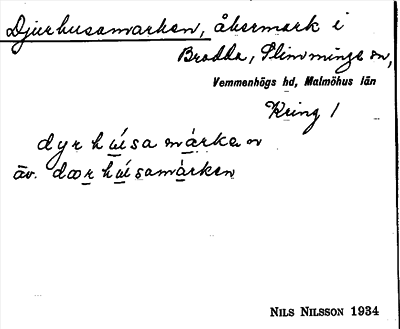 Djurhusamarken, åkermark i
Brodda, Slimminge sn,
Vemmenhögs hd, Malmöhus län
Kring 1
dyrhúsamárkan
äv. dœrhúsamárken
NILS NILSSON 1934